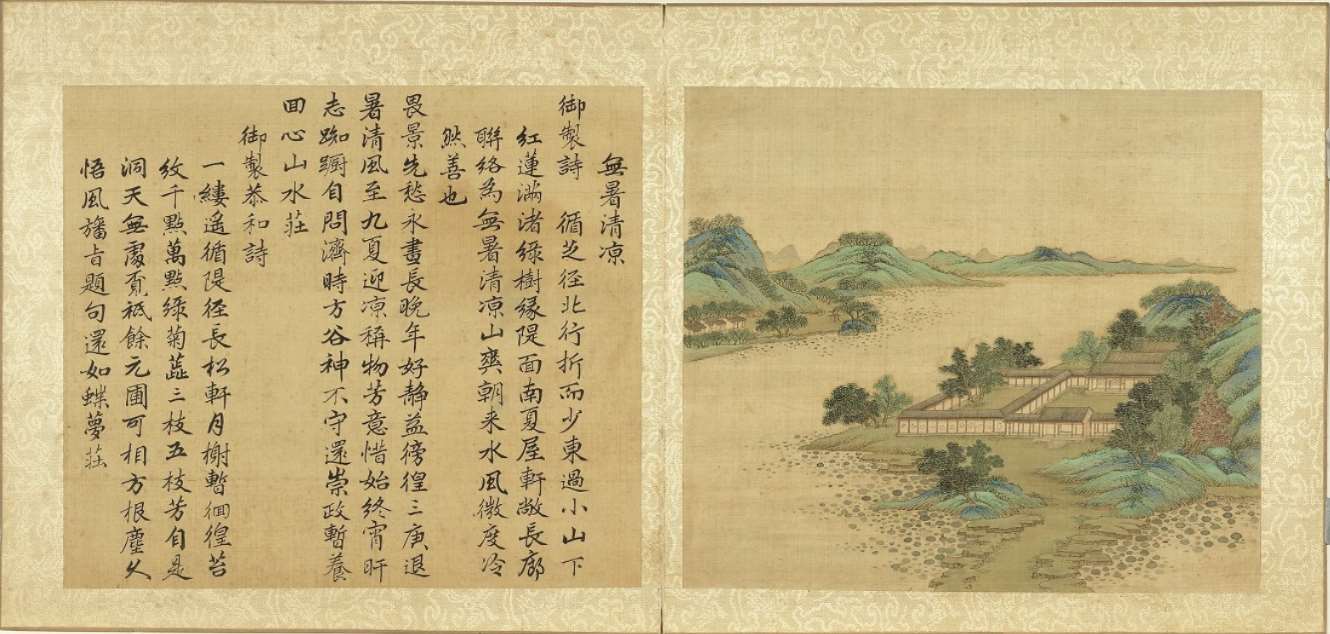 無暑清凉
御製詩　循芝径北行折而少東過小山下
紅蓮滿渚綠樹緣隄面南夏屋軒敞長廊
聯絡為無暑清凉山爽朝来水風微度泠
然善也
畏景先愁永晝長晚年好靜益徬徨三庚退
暑清風至九夏迎凉稱物芳意惜始終宵旰
志踟躕自問濟時方谷神不守還崇政暫養
回心山水莊
御製恭和詩
一縷遙循隄径長松軒月榭暫徊徨苔
紋千點萬點綠菊蕋三枝五枝芳自是
洞天無處覓祗餘元圃可相方根塵久
悟風旛旨題句還如蝶夢莊